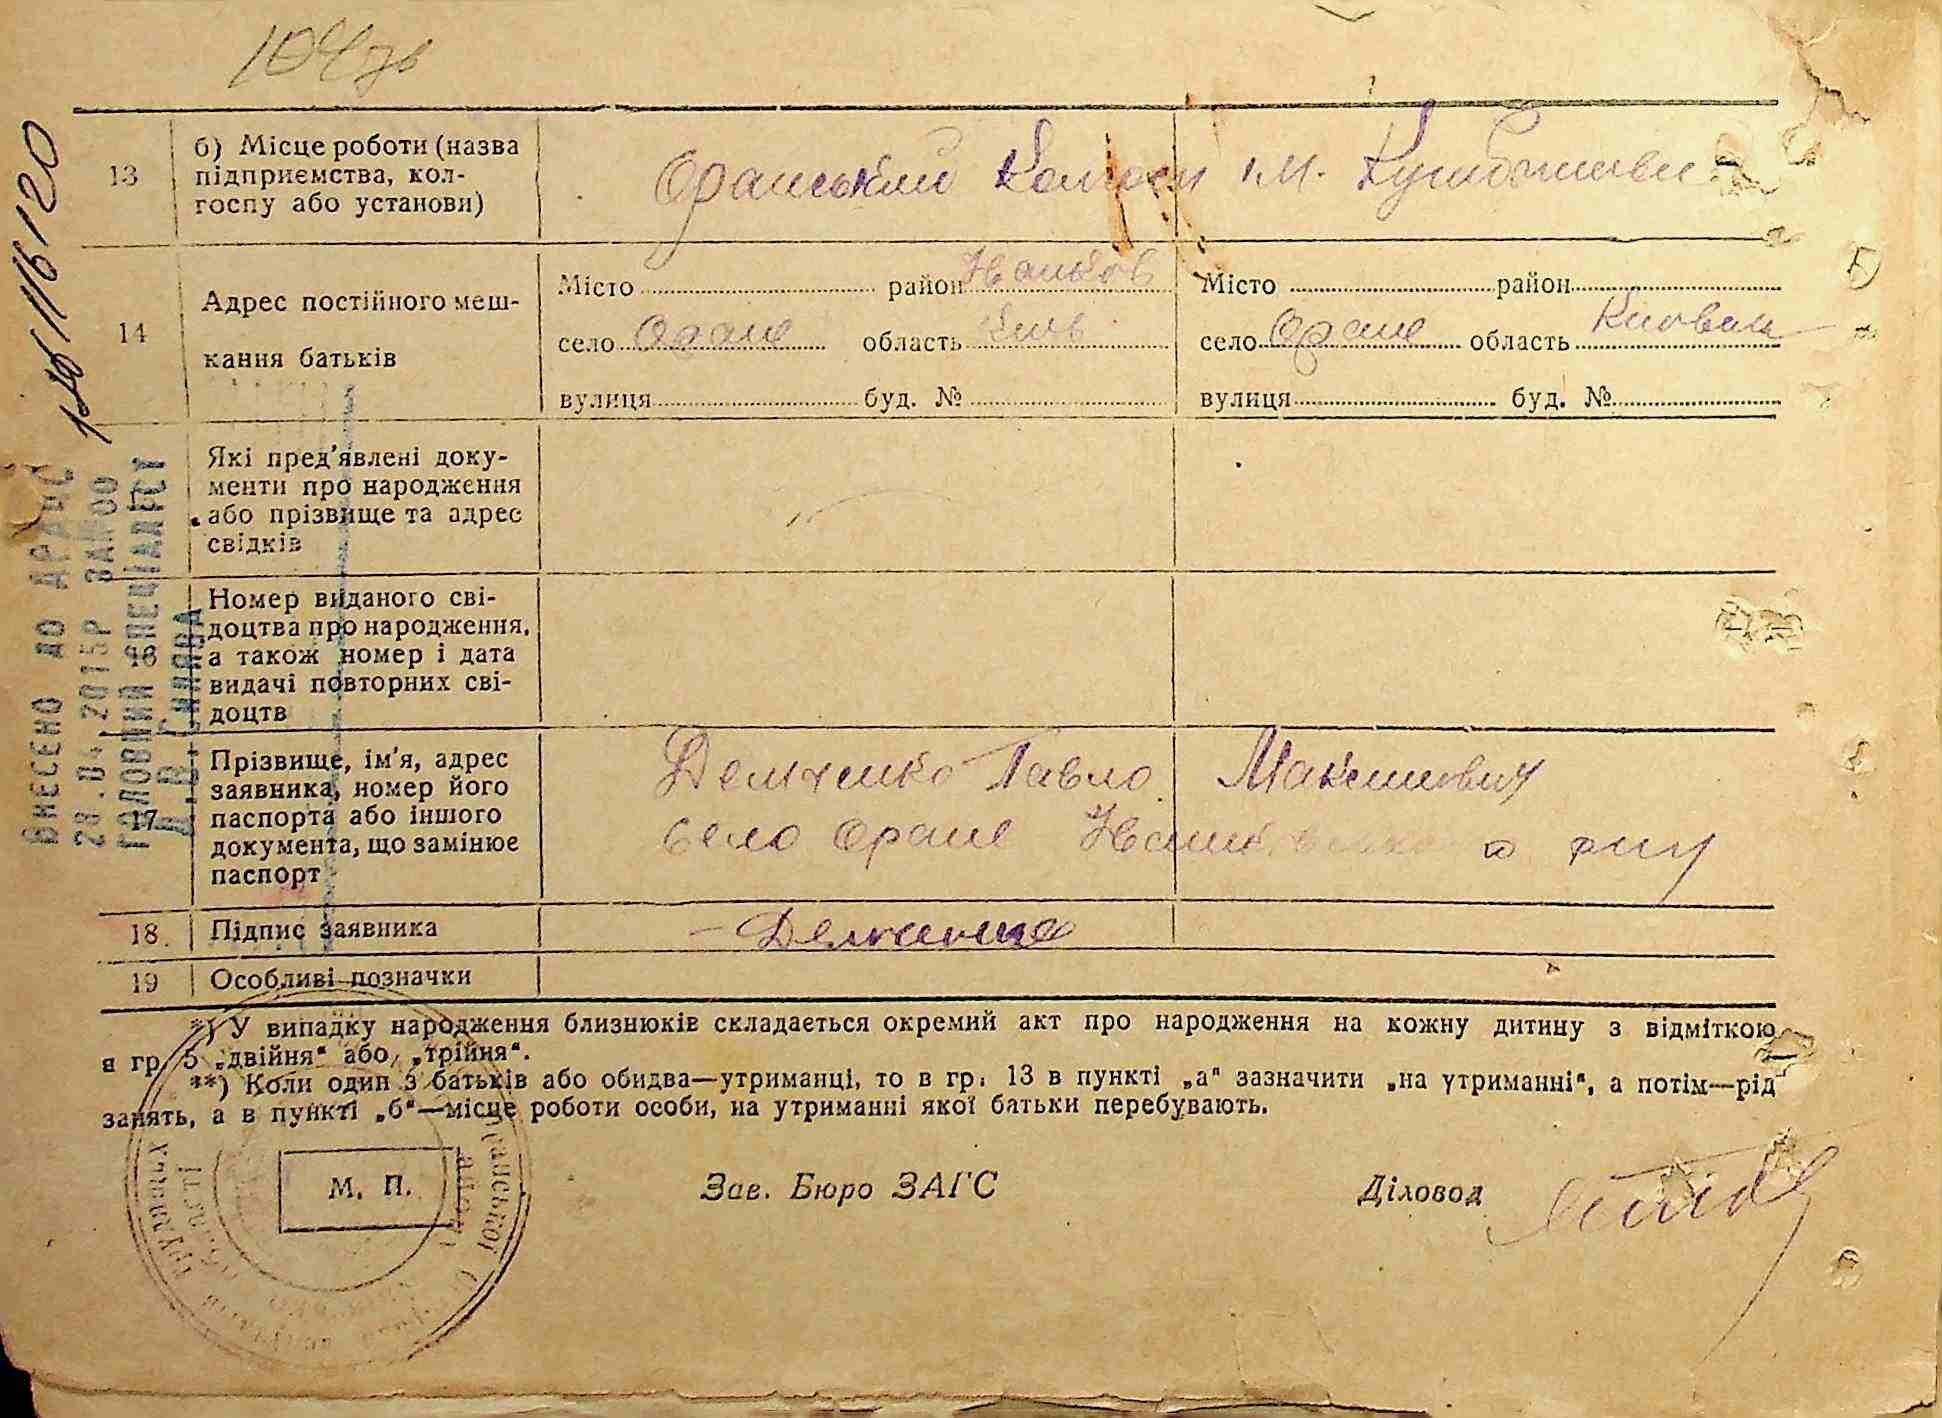 104
13
б) Місце роботи (назва
підприємства, кол-
госпу або установи)
Оранський Колгосп ім.
14
Адрес постійного меш-
кання батьків
Місто район Іванков
село Оране область Київ
вулиця буд. №
Місто район
село Оране область Київськ
вулиця буд. №
Які пред'явлені доку-
менти про народження
або прізвище та адрес
свідків
16
Номер виданого сві-
доцтва про народження,
а також номер і дата
видачі повторних сві-
доцтв
17
Прізвище, ім'я, адрес
заявника, номер його
паспорта або іншого
документа, що замінює
паспорт
Демченко Павло Максимович
село Оране
18.
Підпис заявника
Демченко
19
Особливі позначки
*) У випадку народження близнюків складається окремий акт про народження на кожну дитину з відміткою
в гр. 5 „двійня“ або „трійня“.
**) Коли один з батьків або обидва—утриманці, то в гр. 13 в пункті „а“ зазначити „на утриманні“, а потім—рід
занять, а в пункті „б“—місце роботи особи, на утриманні якої батьки перебувають.
М. П.
Зав. Бюро ЗАГС
Діловод
116120
ВНЕСЕНО ДО ДРАЦС
28.04.2015Р
ГОЛОВНИЙ СПЕЦІАЛІСТ